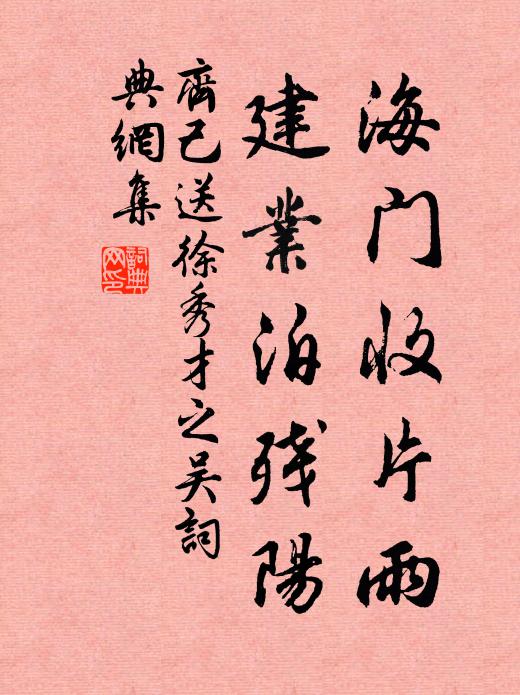 海门收片雨
建業泊残陽
齊己送徐秀才之吴詞
典網集
詞典
网印